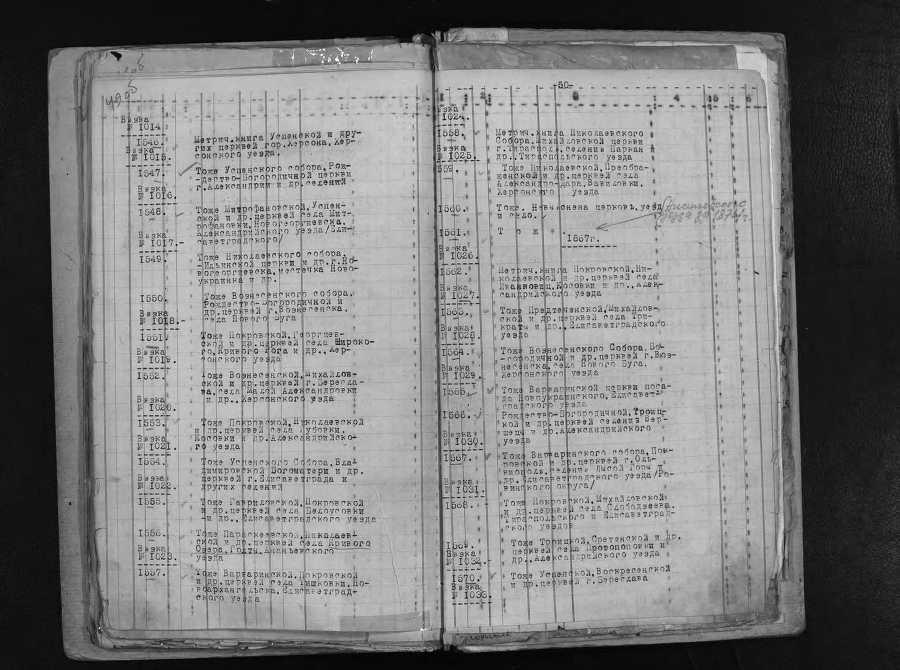 Вязка
№ 1014.
1546.
Метрич.книга Успенской и дру-
гих церквей гор.Херсона,Хер-
сонского уезда.
Вязка
№ 1015.
1547.
Тоже Успенского собора,Рож-
дество-Богородичной церкви
г.Александрии и др.селений
Вязка
№ 1016.
1548.
Тоже Митрофановской,Успен-
ской и др.церквей села Мит-
рофановки,Новогеоргиевска,
Александрийского уезда/Ели-
саветградского/
Вязка
№ 1017.-
1549.
Тоже Николаевского собора,
-Ильинской церкви и др.г.Но-
вогеоргиевска,местечка Ново-
украинка и др.
1550.
Тоже Вознесенского собора,
Рождество-Богородичной и
др.церквей г.Вознесенска,
села Нового Буга
Вязка
№ 1018.-
1551.
Тоже Покровской,Георгиев-
ской и др.церквей села Широко-
го,Кривого Рога и др.,Хер-
сонского уезда
Вязка
№ 1019.
1552.
Тоже Вознесенской,Михайлов-
ской и др.церквей г.Бересла-
ва,села Малой Александровки
и др.,Херсонского уезда
Вязка
№ 1020.
1553.
Тоже Покровской,Николаевской
и др.церквей села Дубовки,
Косовки и др.Александрийско-
го уезда
Вязка
№ 1021.
1554.
Тоже Успенского Собора,Вла-
димировской Богоматери и др.
церквей г.Елисаветграда и
других селений
Вязка
№ 1022.
1555.
Тоже Гавриловской,Покровской
и др.церквей села Белоусовки
-и др.,Елисаветградского уезда
1556.
Тоже Параскеевской,Николаев-
ской и др.церквей села Кривого
Озера,Голты,Ананьевского
уезда
Вязка
№ 1023.
1557.
Тоже Варваринской,Покровской
и др.церквей села Тишковки,Но-
воархангельска,Елисаветград-
ского уезда
-50-
1 2 3 4 5 6
Вязка
№ 1024.
1558.
Метрич.книга Николаевского
Собора,Михайловской церкви
г.Тирасполя,селения Паркан и
др.,Тираспольского уезда
Вязка
№ 1025.
1559.
Тоже Николаевской,Преобра-
женской и др.церквей села
Александро-Дара,Вавиловки,
Херсонского уезда
1560.
Тоже. Невыяснена церковь,уезд
и село.
1561.
Т о ж е
1867г.
Вязка
№ 1026.
1562.
Метрич.книга Покровской,Ни-
колаевской и др.церквей села
Ивановки,Косовки и др.,Алек-
сандрийского уезда
Вязка
№ 1027.
1563.
Тоже Предтеченской,Михайлов-
ской и др.церквей села Три-
крат и др.,Елисаветградского
уезда
Вязка
№ 1028.
1564.
Тоже Вознесенского Собора,Бо-
городичной и др.церквей г.Воз-
несенска,села Нового Буга,
Херсонского уезда
Вязка
№ 1029.
1565.
Тоже Варваринской церкви поса-
да Новоукраинского,Елисавет-
градского уезда
1566.
Рождество-Богородичной,Троиц-
кой и др.церквей селения Вер-
шецы и др.Александрийского
уезда
Вязка
№ 1030.
1567.
Тоже Варваринского собора,Пок-
ровской и др.церквей г.Оль-
виополя,селение Лысой Горы и
др.Елисаветградского уезда/Бо-
винского округа/
Вязка
№ 1031.
1568.
Тоже Покровской,Михайловской
и др.церквей села Слободзеева,
Тираспольского и Елисаветград-
ского уездов
1569.
Тоже Троицкой,Сретенской и др.
церквей села Протопоповки и
др.,Александрийского уезда
Вязка
№ 1032.
1570.
Тоже Успенской,Воскресенской
и др.церквей г.Береслава
Вязка
№ 1033.